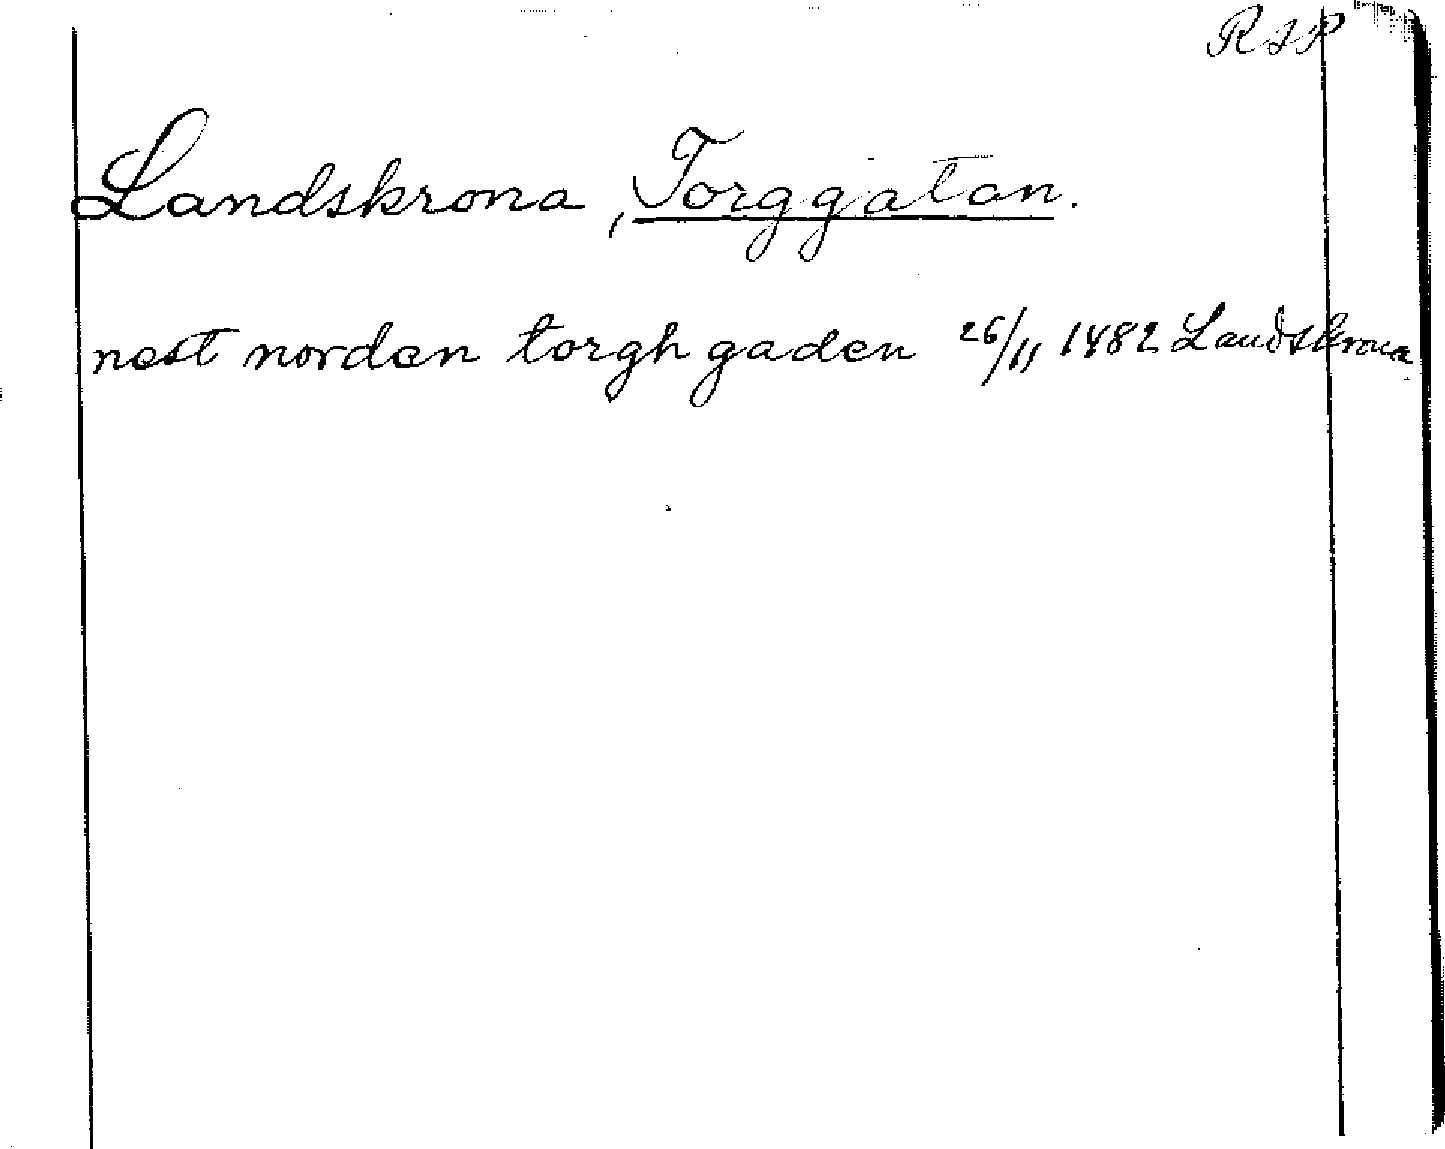 RAP
Landskrona, Torggatan.
nest norden torgh gaden 26/11 1482 Landskrona